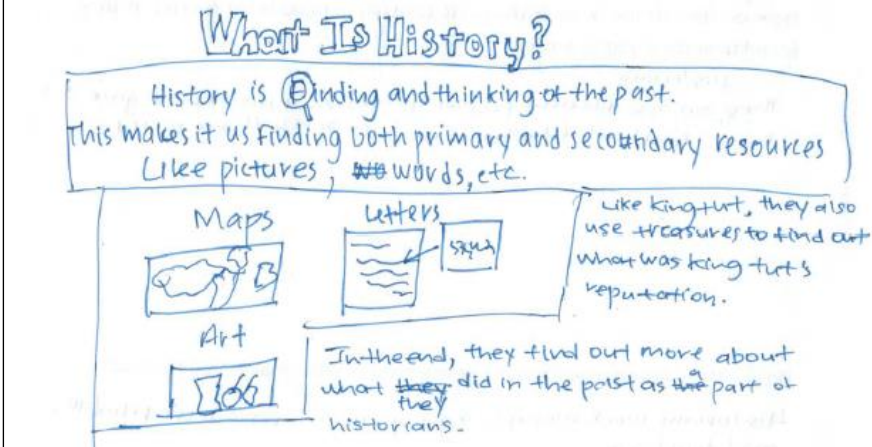 What Is History?
History is Finding and thinking of the past.
This makes it us finding both primary and secoundary resources
Like pictures, words, etc.
Maps
Letters
Like king turt, they also
use treasures to find out
what was king tut's
reputation.
Art
In the end, they find out more about
what they did in the past as a part of
historians.